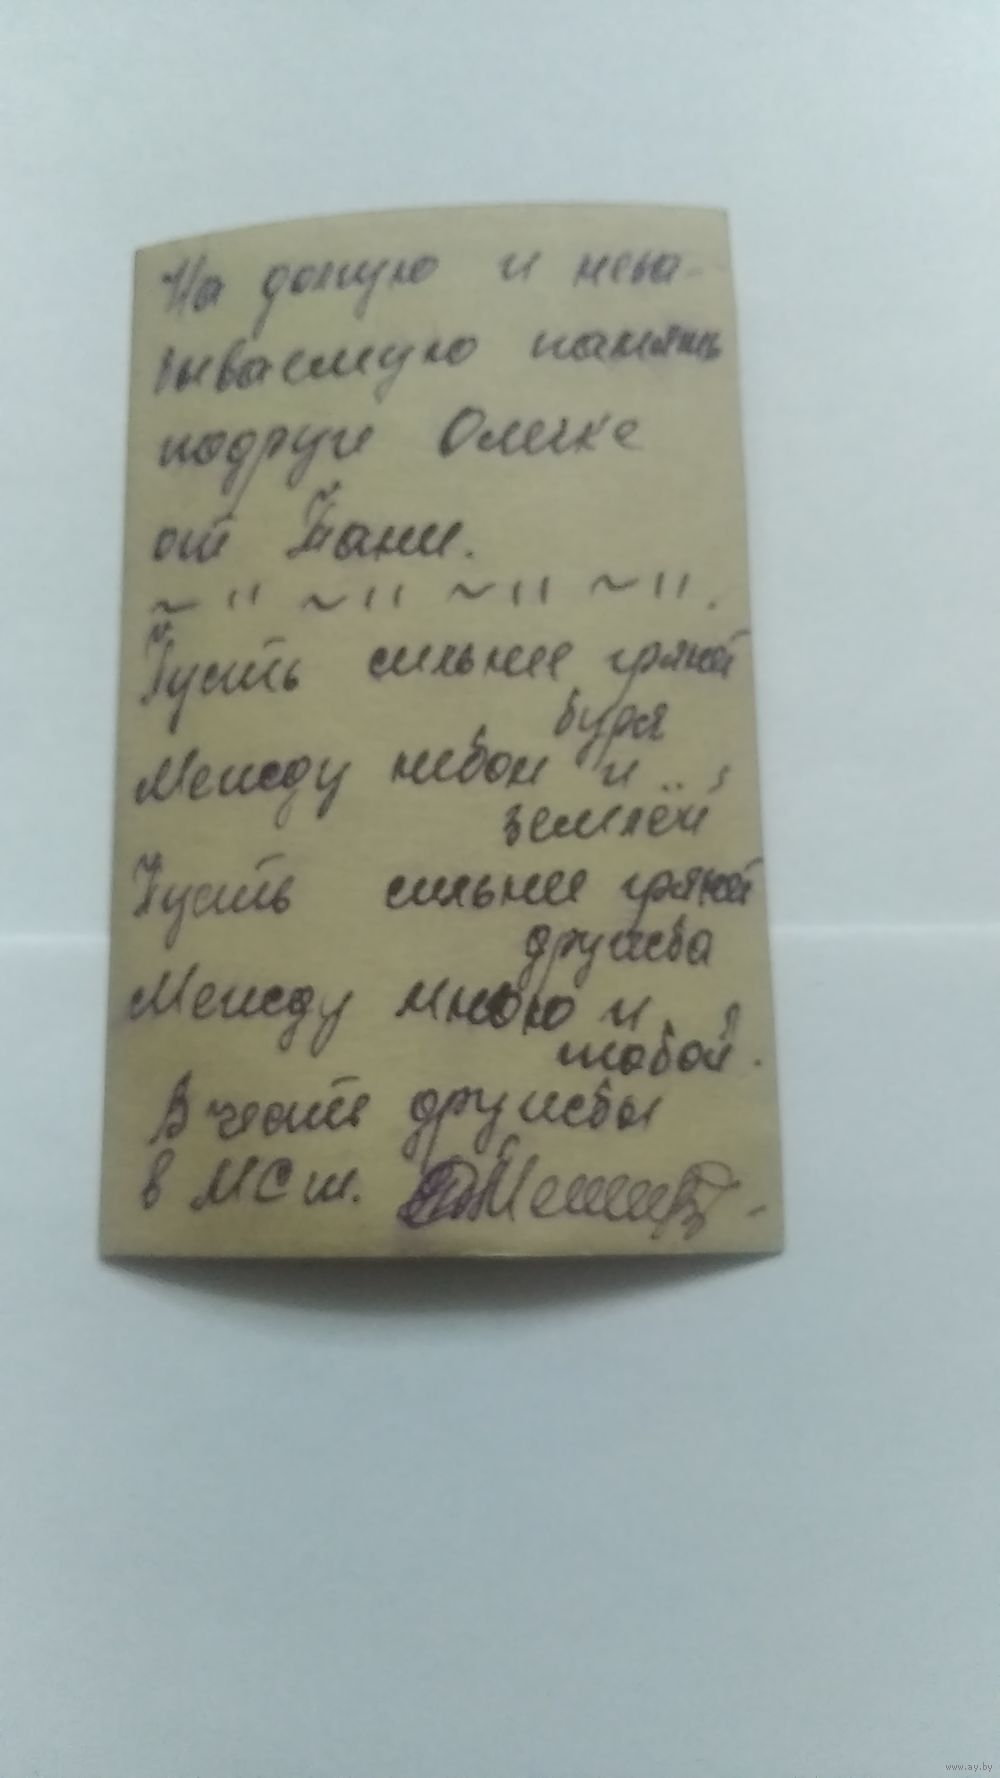 На долгую и неза-
бываемую память
подруге Олечке
от Тани.
~ " ~ " ~ " ~ ".
Пусть сильнее грянет
буря
Между небом и
землёй,
Пусть сильнее грянет
дружба
Между мною и
тобой.
В честь дружбы
в МСш.
www.ay.by